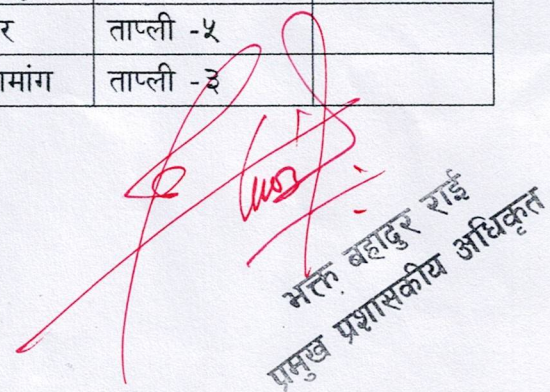 र ताप्ली -५
ामांग ताप्ली -३
भक्त बहादुर राई
प्रमुख प्रशासकीय अधिकृत